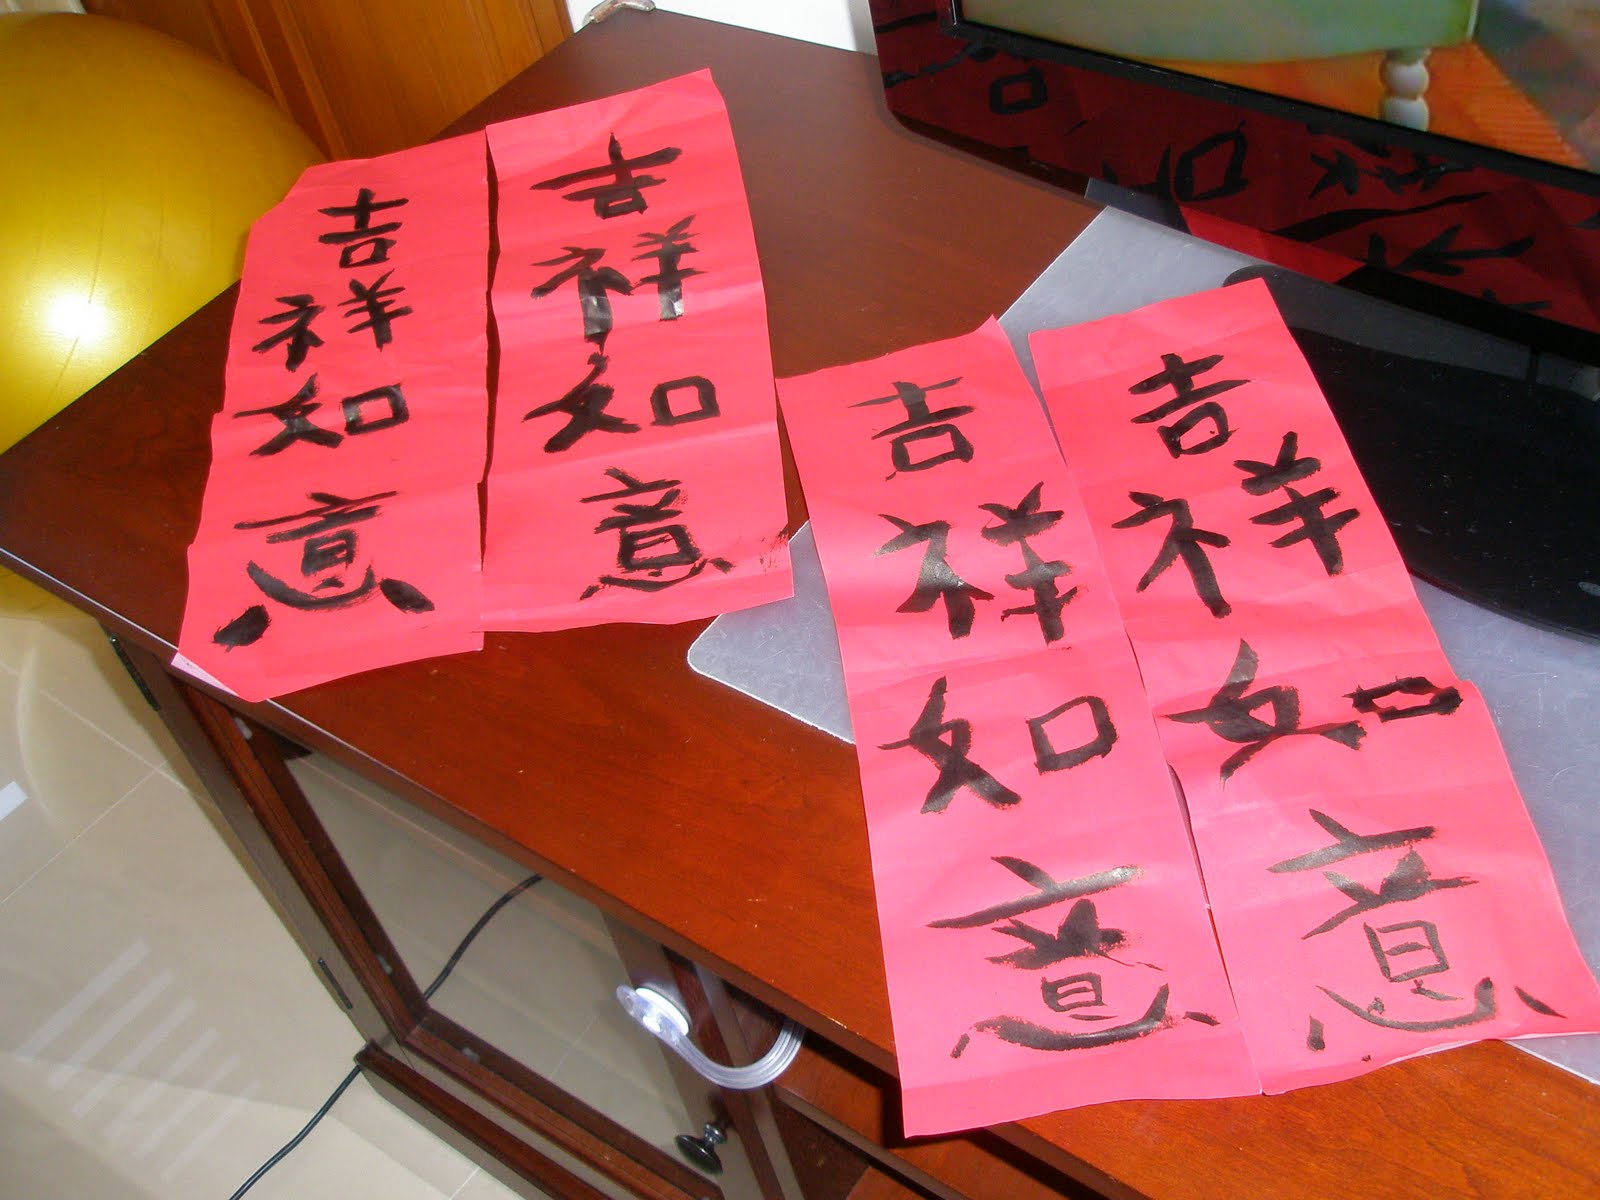 吉祥如意
吉祥如意
吉祥如意
吉祥如意